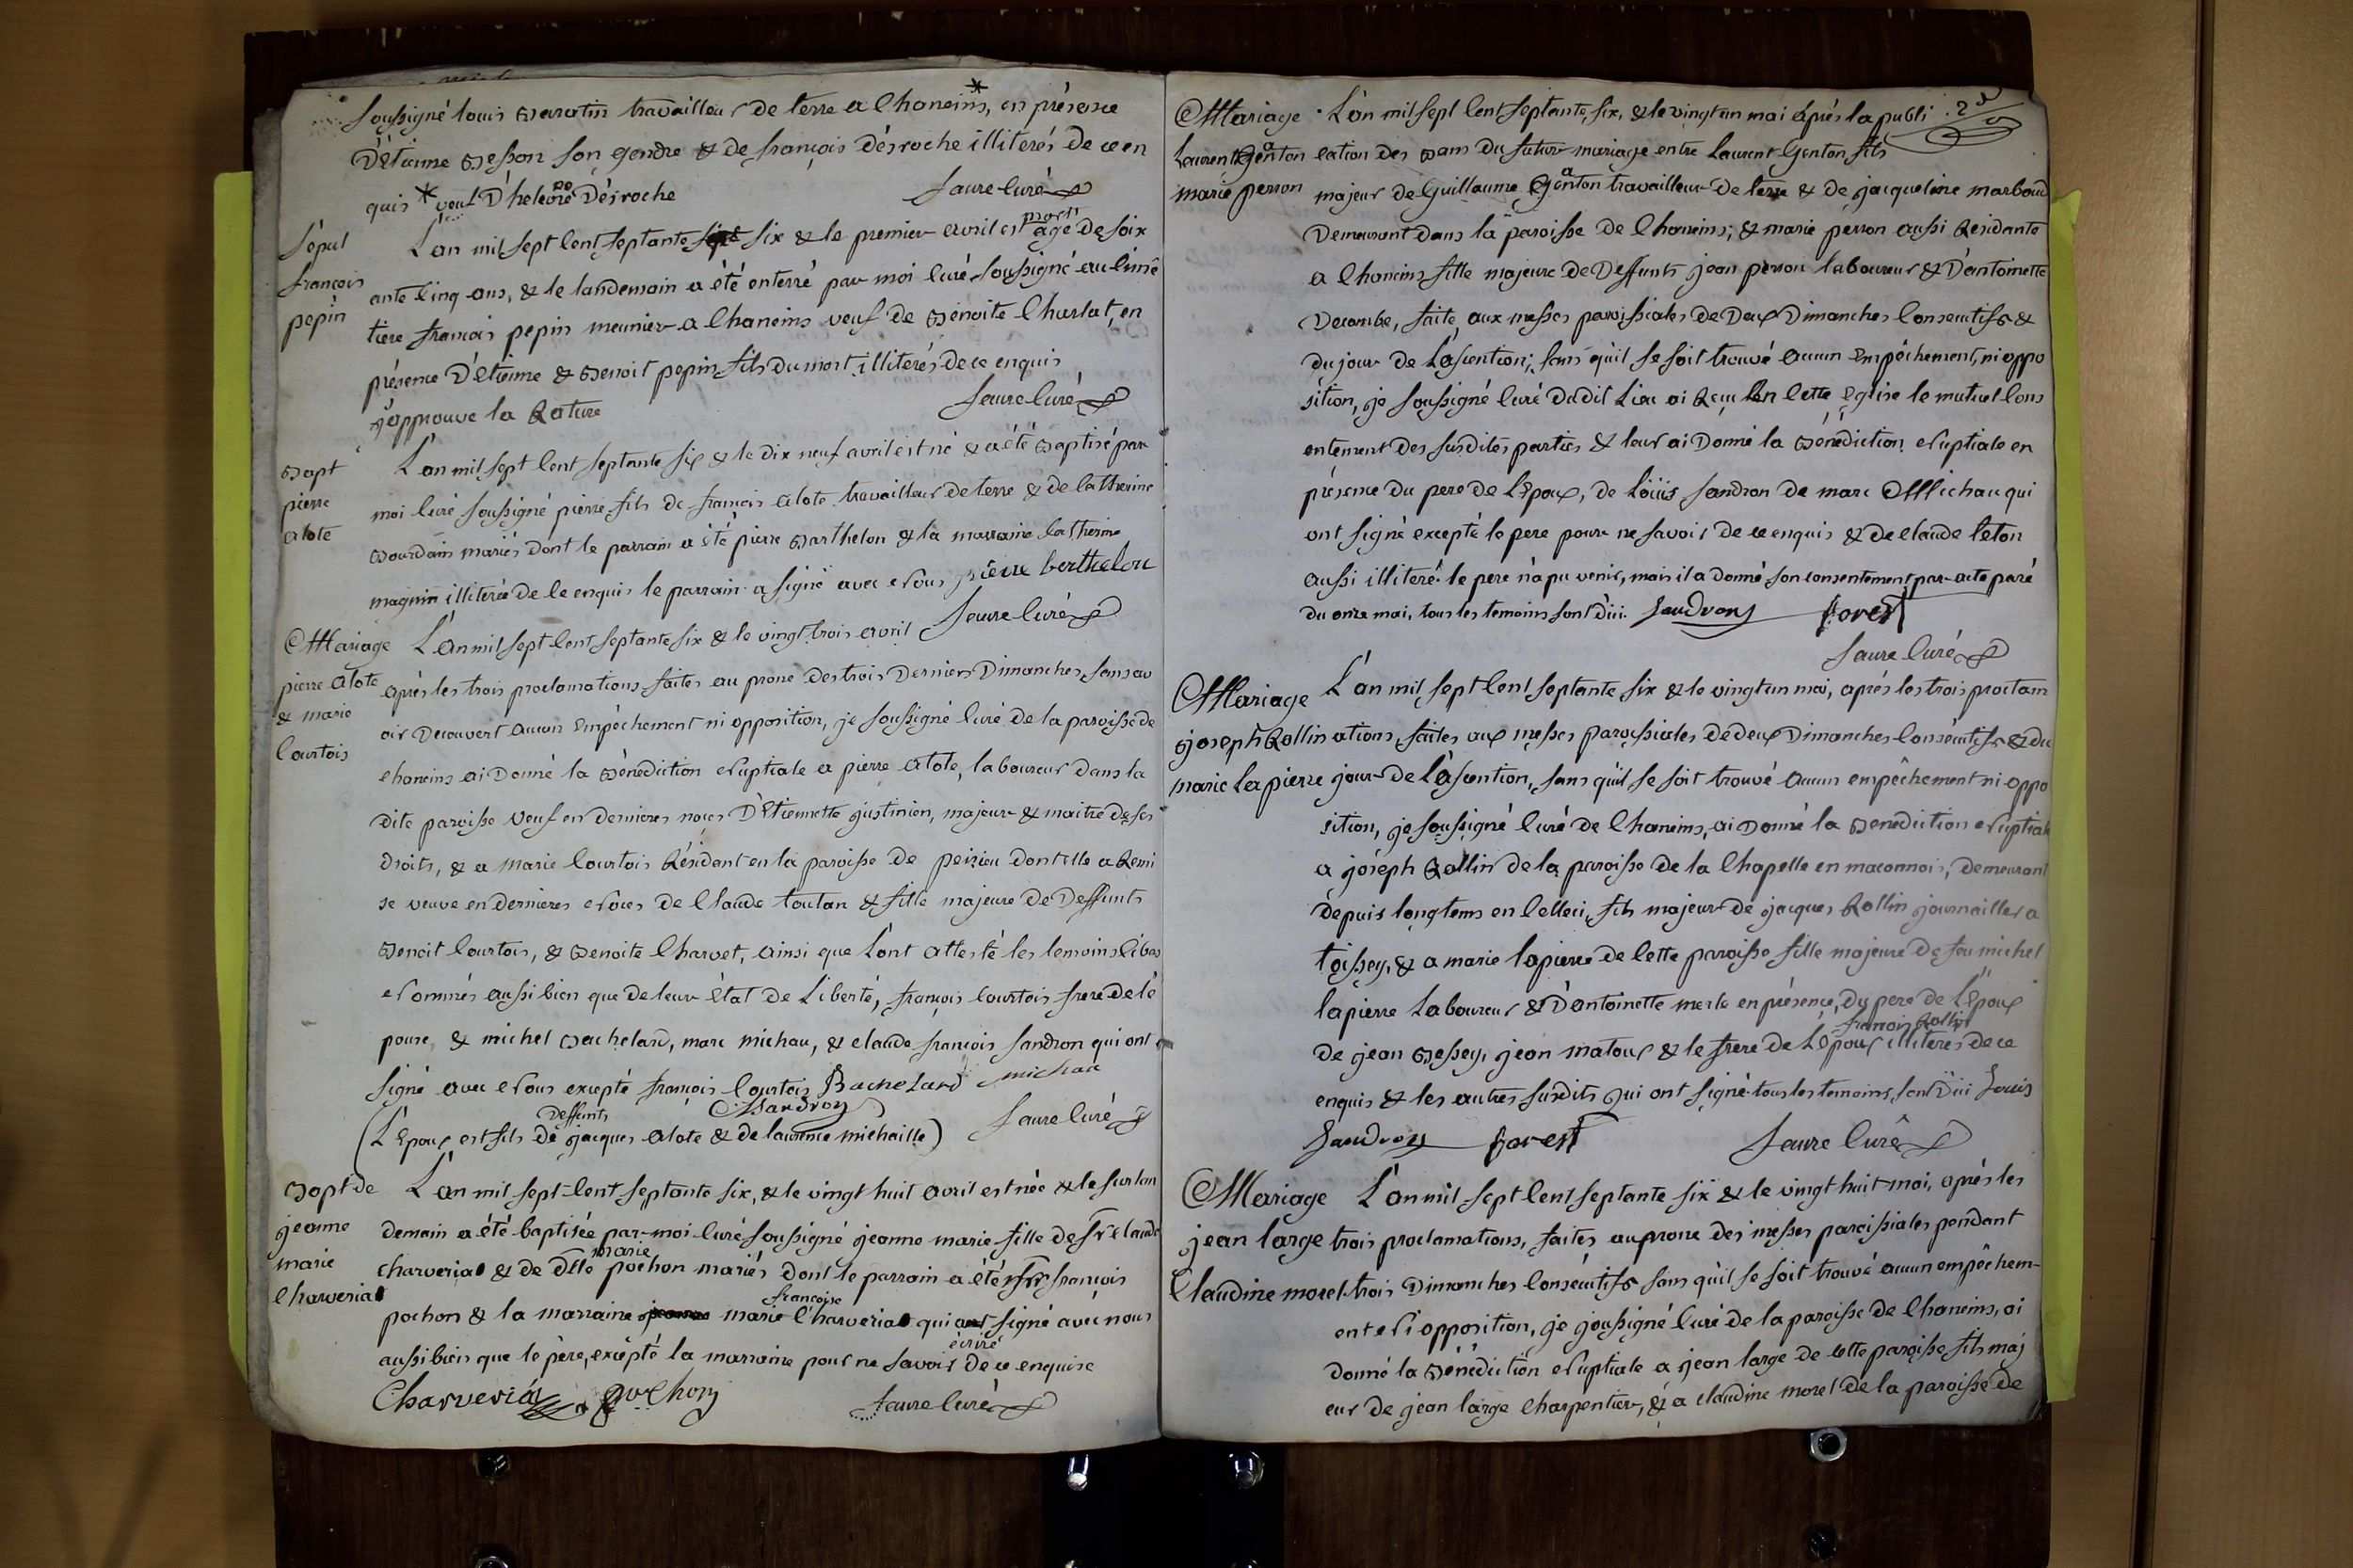 soussigné louis baratin travailleur de terre a Chaneins*, en présence
D'Etienne besson son gendre & de françois Désroche illiterés de ce en
quis * veuf D'helene Désroche faure Curé
Sépul
françois
pepin
L'an mil sept Cent septante sept six & le premier avril est mort agé de soix
ante Cinq ans, & le landemain a été enterré par moi Curé soussigné au Cimê
tiere françois pepin meunier a Chaneins veuf de benoite Charlat, en
présence D'Etienne & benoit pepin fils du mort illiterés de ce enquis
j'approuve la Rature faure Curé
bapt
pierre
alote
L'an mil sept Cent septante six & le Dix neuf avril est né & a été baptisé par
moi Curé soussigné pierre fils de françois alote travailleur de terre & de Catherine
bourdain mariés dont le parrain a été pierre barthelon & la marraine Catherine
magnin illiterée de ce enquis le parrain a signé avec Nous pierre berthelon
faure Curé
Mariage
pierre alote
& marie
Courtois
L'an mil sept Cent septante six & le vingt trois avril
aprés les trois proclamations faites au prone des trois Derniers Dimanches, sans av
oir Decouvert aucun Empêchement ni opposition, je soussigné Curé de la paroisse de
Chaneins ai Donné la bénédiction Nuptiale a pierre alote, laboureur dans la
dite paroisse veuf en dernieres noces D'Etiennette justinien, majeur & maitre de ses
Droits, & a marie Courtois Résident en la paroisse de peizieu dont elle a Remi
se veuve en dernieres Noces de Claude toutan & fille majeure de Deffunts
benoit Courtois, & benoite Charvet, ainsi que l'ont attesté les temoins Ci bas
Nommés aussi bien que de leur état de Liberté, françois Courtois frere de l'é
pouse, & michel bachelard, marc michau, & claude françois sandron qui ont
signé avec Nous excepté françois Courtois Bachelard michau
Sandron
(L'Epoux est fils de Deffunts jacques alote & de laurence michaille) faure Curé
bapt de
jeanne
marie
Charveria
L'an mil sept Cent septante six, & le vingt huit avril est née & le surlan
demain a été baptisée par moi Curé soussigné jeanne marie fille de Sr Claude
Charveria & de Dlle marie pochon mariés dont le parrain a été Sr françois
pochon & la marraine jeanne marie françoise Charveria qui ont signé avec nous
aussi bien que le père, excépté la marraine pour ne savoir écrire de ce enquise
Charveria pochon faure Curé
2
Mariage
Laurent Ganton
marie perron
L'an mil sept Cent septante, six, & le vingt un mai aprés la publi
cation des bans du futur mariage entre Laurent Genton fils
majeur de Guillaume Ganton travailleur de terre & de jacqueline marboud
Demeurant dans la paroisse de Chaneins; & marie perron aussi Residante
a Chaneins fille majeure de Deffunts jean perron laboureur & D'antoinette
Decombe, faite aux messes paroissiales de Deux Dimanches Consecutifs &
du jour de L'ascention; sans qu'il se soit trouvé aucun Empêchement, ni oppo
sition, je soussigné Curé Dudit Lieu ai Reçu En Cette Eglise le mutuel Cons
entement des susdites parties & leur ai Donné la bénédiction Nuptiale en
présence du pere de L'Epoux, de Loüis sandron de marc Michau qui
ont signé excepté le pere pour ne savoir de ce enquis & de claude Ceton
aussi illiteré. le pere n'a pu venir, mais il a donné son consentement par acte paré
du onze mai, tous les temoins sont d'ici. Sandron forest
faure Curé
Mariage
joseph Rollin
marie Lapierre
L'an mil sept Cent septante six & le vingt un mai, aprés les trois proclam
ations, faites aux messes paroissiales de deux Dimanches Consécutifs & du
jour de L'ascention, sans qu'il se soit trouvé aucun empêchement ni oppo
sition, je soussigné Curé de Chaneins, ai Donné la benediction Nuptiale
a joséph Rollin de la paroisse de la Chapelle en maconnois, Demeurant
depuis longtems en Celleci, fils majeur de jacques Rollin journaillier a
toissey, & a marie lapierre de Cette paroisse fille majeure de feu michel
lapierre Laboureur & D'antoinette merle en présence, du pere de L'Epoux
de jean bessey, jean matoux & le frere de L'Epoux françois Rollin illiterés de ce
enquis & les autres susdits qui ont signé tous les temoins, sont D'ici Louis
Sandron forest faure Curê
Mariage
jean large
Claudine morel
L'an mil sept Cent septante six & le vingt huit mai, aprés les
trois proclamations, faites au prone des messes paroissiales pendant
trois Dimanches Consécutifs sans qu'il se soit trouvé aucun empêchem-
ent Ni opposition, je soussigné Curé de la paroisse de Chaneins, ai
donné la bénédiction Nuptiale a jean large de cette paroisse fils maj
eur de jean large Charpentier, & a claudine morel de la paroisse de